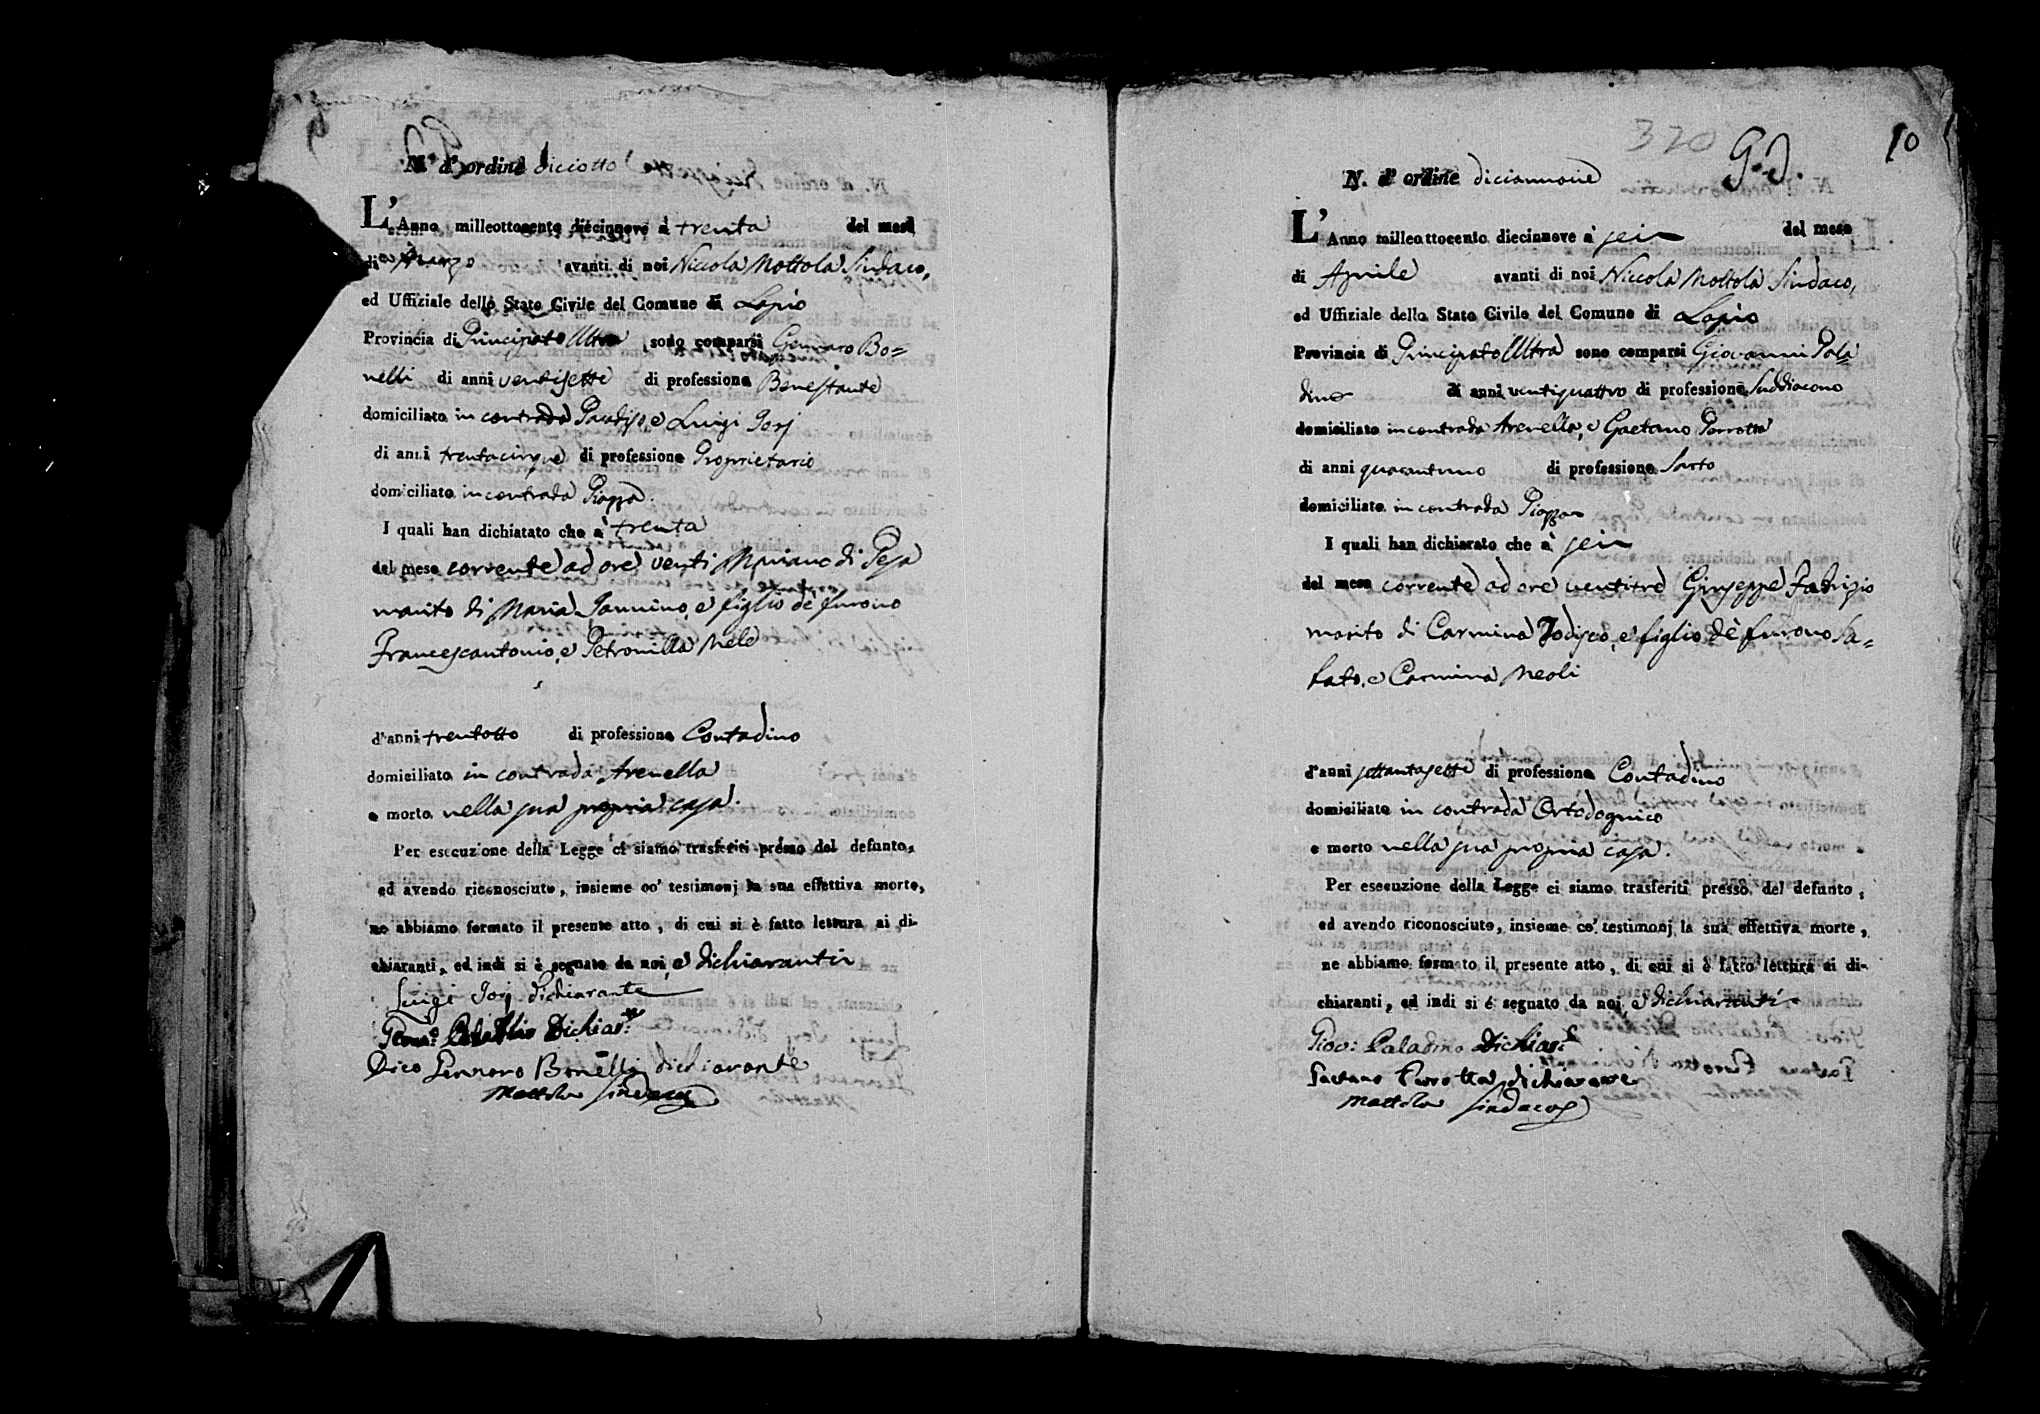 N.º d' ordine diciotto
L'Anno milleottocento diecinnove à trenta del mese
di Marzo avanti di noi Niccola Mottola Sindaco,
ed Uffiziale dello Stato Civile del Comune di Lapio
Provincia di Principato Ultra sono comparsi Gennaro Bo=
nelli di anni ventisette di professione Benestante
domiciliato in contrada Paradiso, e Luigi Jorj
di anni trentacinque di professione Proprietario
domiciliato in contrada Piazza.
I quali han dichiatato che à trenta
del mese corrente ad ore venti Mariano di Pesa
marito di Maria Jannino, e figlio de' furono
Francescantonio, e Petronilla Mele
d'anni trentotto di professione Contadino
domiciliato in contrada Arenella
e morto nella sua propria casa.
Per esecuzione della Legge ci siamo trasferiti presso del defunto,
ed avendo riconosciuto, insieme co' testimonj la sua effettiva morte,
ne abbiamo formato il presente atto, di cui si è fatto lettura ai di-
chiaranti, ed indi si è segnato da noi, e dichiaranti
Luigi Jorj dichiarante
Dichiar.
Dico Gennaro Bonelli dichiarante
Mottola Sindaco
320 G.D. 10
N. d' ordine diciannove
L'Anno milleottocento diecinnove à sei del mese
di Aprile avanti di noi Niccola Mottola Sindaco,
ed Uffiziale dello Stato Civile del Comune di Lapio
Provincia di Principato Ultra sono comparsi Giovanni Pala=
dino di anni ventiquattro di professione Suddiacono
domiciliato in contrada Arenella, e Gaetano Perrotta
di anni quarantuno di professione Sarto
domiciliato in contrada Piazza
I quali han dichiarato che à sei
del mese corrente ad ore ventitre Giuseppe Fabrizio
marito di Carmina Jodisco, e figlio de' furono Sa=
bato, e Carmina Meoli
d'anni settantasette di professione Contadino
domiciliato in contrada Ortodognico
e morto nella sua propria casa.
Per esecuzione della Legge ci siamo trasferiti presso del defunto,
ed avendo riconosciuto, insieme co' testimonj la sua effettiva morte,
ne abbiamo formato il presente atto, di cui si è fatto lettura ai di-
chiaranti, ed indi si è segnato da noi, e dichiaranti
Giov: Paladino Dichiar.
Gaetano Perrotta dichiarante
Mottola Sindaco